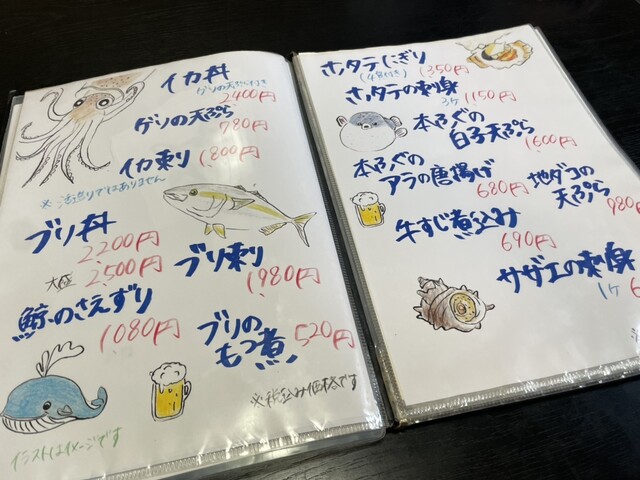 イカ丼
ゲソの天ぷら付き
2400円
ゲソの天ぷら
780円
イカ刺り
1800円
※活造りではありません
ブリ丼
2200円
大盛 2,500円
ブリ刺り
1980円
鯨のさえずり
1080円
ブリの
もつ煮
520円
※税込み価格です
イラストはイメージです
ホタテにぎり
(4貫付き)
1350円
ホタテの刺身
3ケ 1150円
本ふぐの
白子天ぷら
1600円
本ふぐの
アラの唐揚げ
680円
地ダコの
天ぷら
980円
牛すじ煮込み
690円
サザエの刺身
1ケ 6